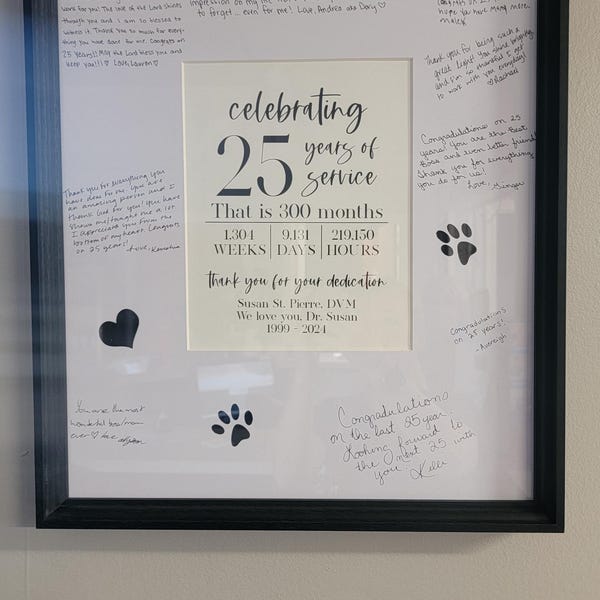 work for you! The love of the Lord shines
through you and I am so blessed to
witness it. Thank you so much for every-
thing you have done for me. Congrats on
25 years!! May the Lord bless you and
keep you!!! ♡ Love, Lauren ♡
to forget... even for me! Love, Andrea aka Dory ♡
hope to have many more
Thank you for being such a
great light! You shine brightly
and I'm so thankful I get
to work with you everyday!
♡ Rachael
celebrating
25 years of
service
That is 300 months
1,304 9,131 219,150
WEEKS DAYS HOURS
thank you for your dedication
Susan St. Pierre, DVM
We love you, Dr. Susan
1999 - 2024
Congratulations on 25
years! You are the best
boss and even better friend!
Thank you for everything
you do for us!
Love,
Thank you for everything you
have done for me. You are
an amazing person and I
thank God for you! You have
shown me/taught me a lot
I appreciate you from the
bottom of my heart. Congrats
on 25 years!
-Love,
Congratulations
on 25 years!
- Avereigh
You are the most
wonderful boss/mom
ever ♡ Love
Congradulations
on the last 25 year.
Looking forward to
the next 25 with
you. Kelli